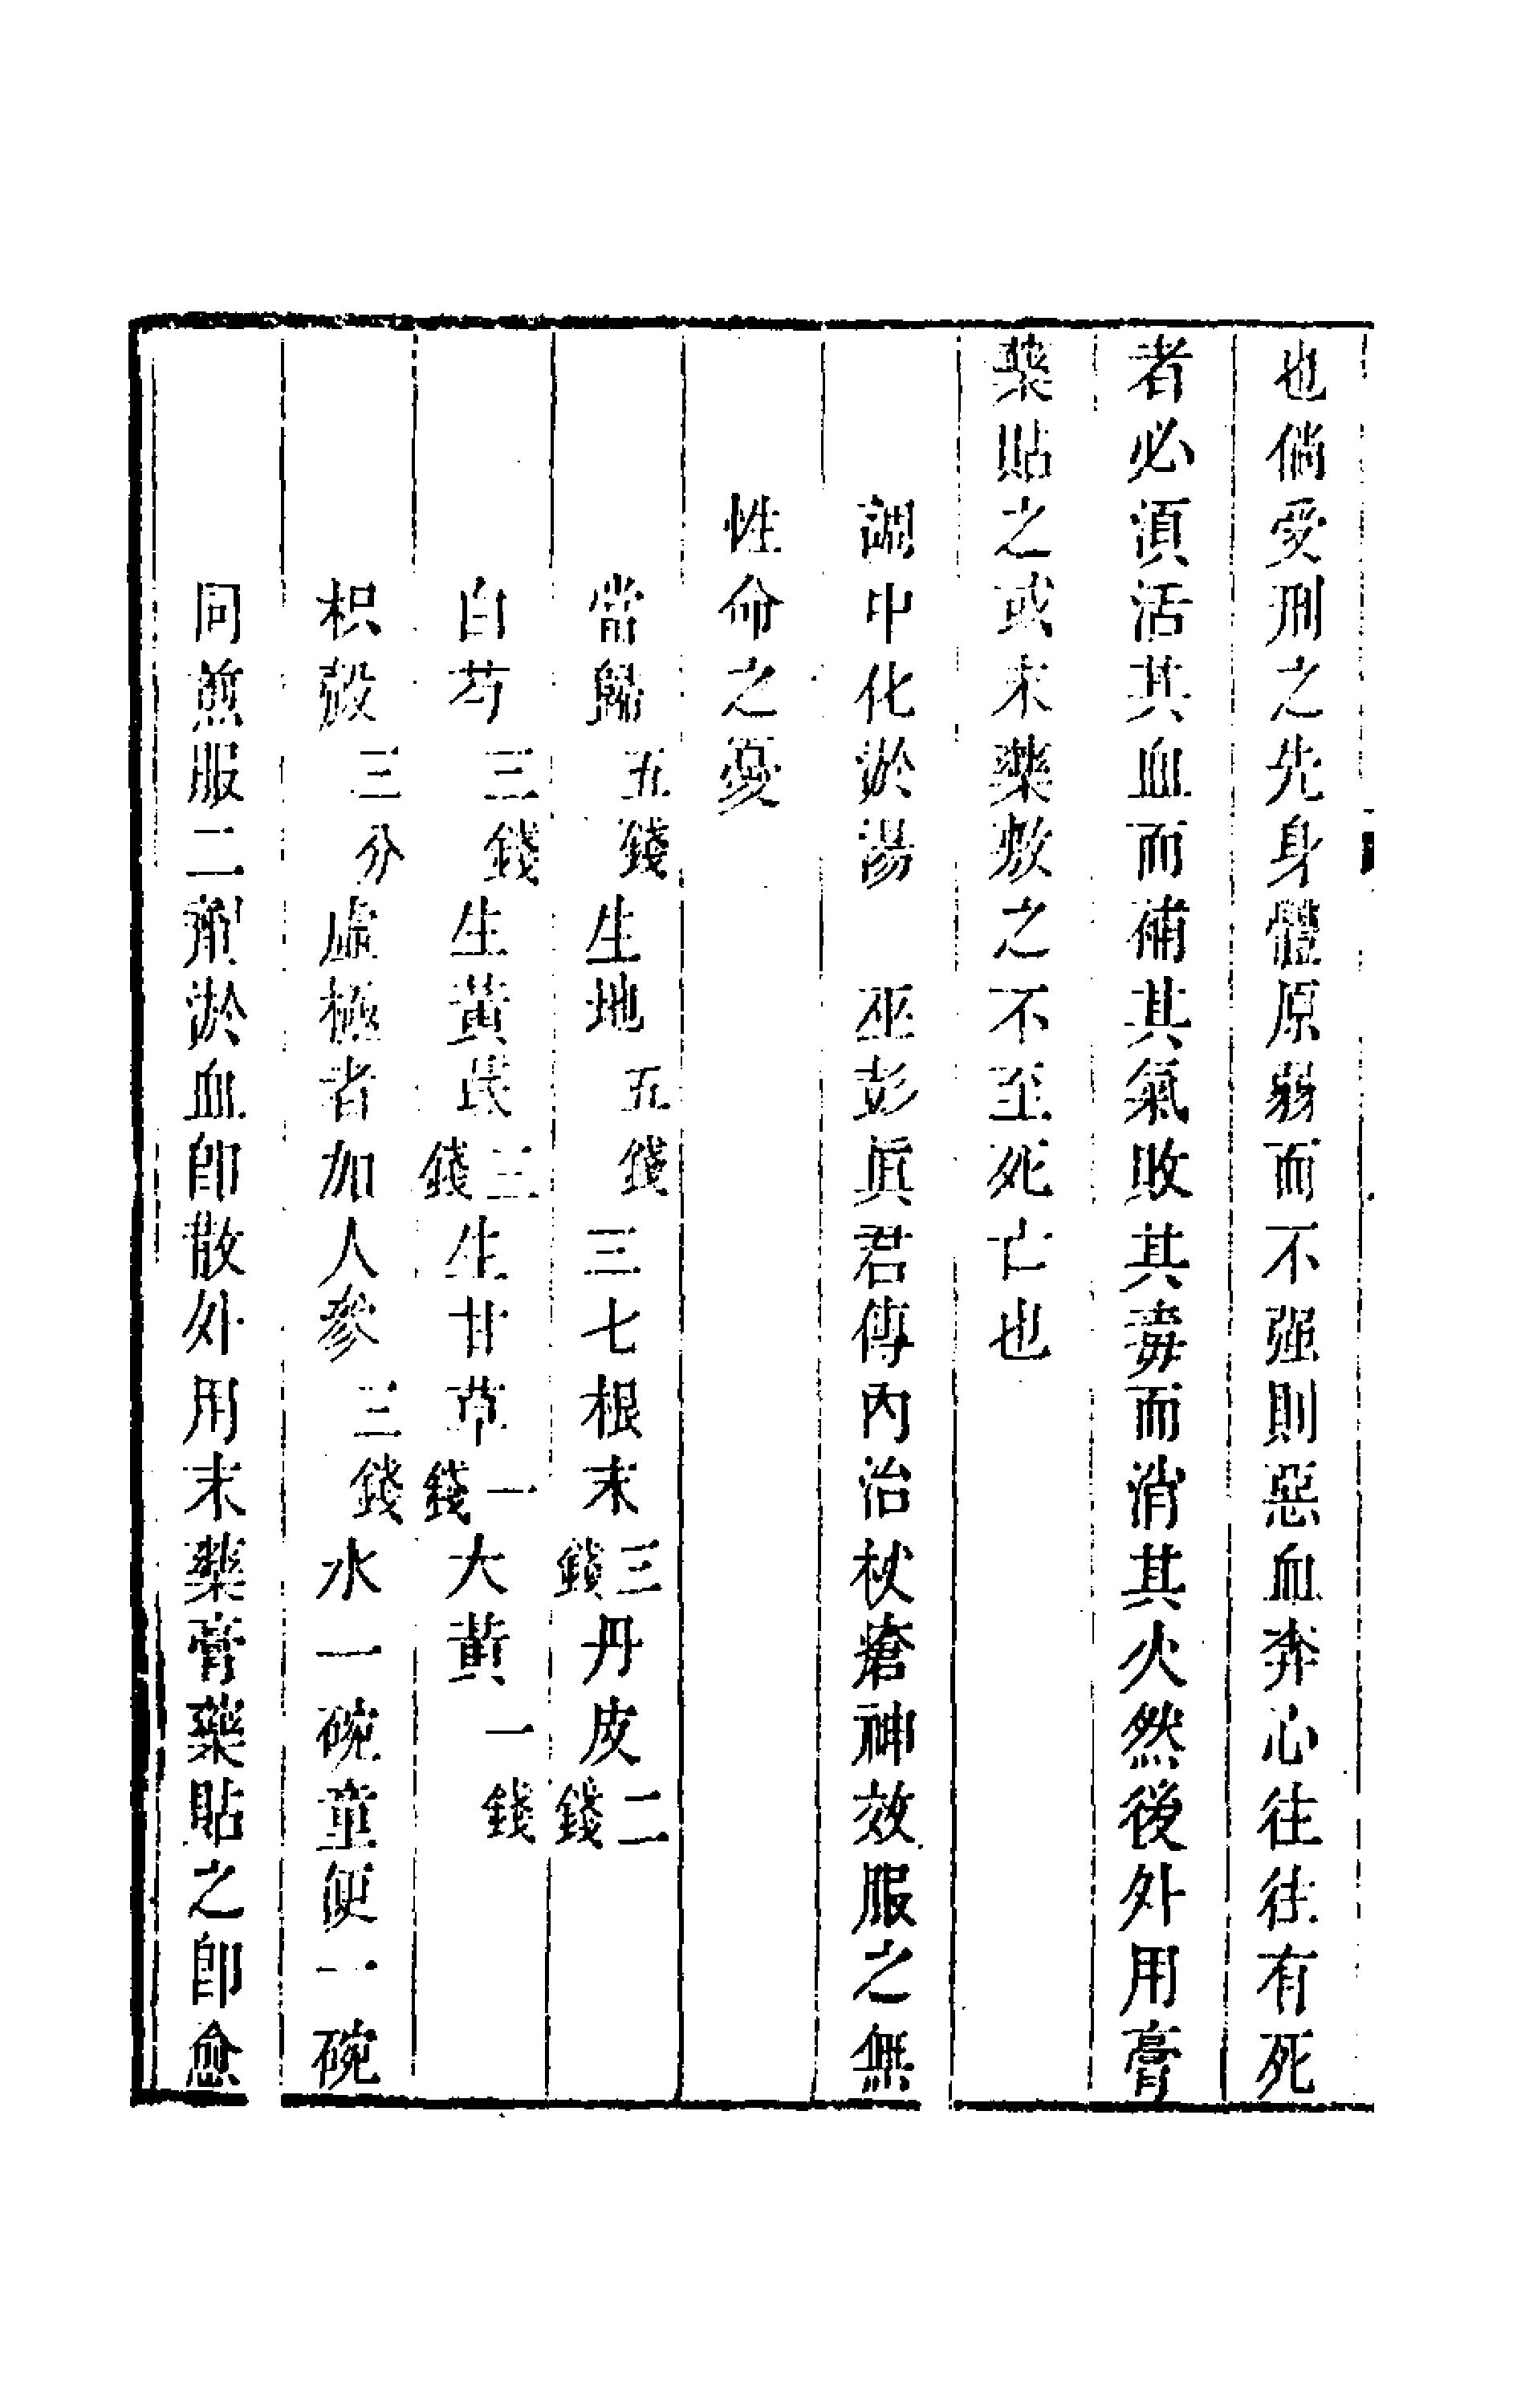 也倘受刑之先身體原弱而不强則惡血奔心往往有死
者必須活其血而補其氣敗其毒而消其火然後外用膏
藥貼之或末藥敷之不至死亡也
調中化淤湯　巫彭眞君傳內治杖瘡神效服之無
性命之憂
當歸五錢生地五錢三七根末三錢丹皮二錢
白芍三錢生黃芪三錢生甘草一錢大黃一錢
枳殼三分虛極者加人參三錢水一碗童便一碗
同煎服二劑淤血卽散外用末藥膏藥貼之卽愈